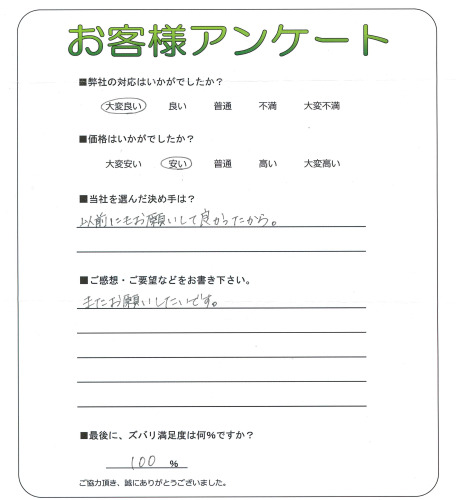 お客様アンケート
■弊社の対応はいかがでしたか?
大変良い 良い 普通 不満 大変不満
■価格はいかがでしたか?
大変安い 安い 普通 高い 大変高い
■当社を選んだ決め手は?
以前にもお願いして良かったから。
■ご感想・ご要望などをお書き下さい。
またお願いしたいです。
■最後に、ズバリ満足度は何%ですか?
100 %
ご協力頂き、誠にありがとうございました。